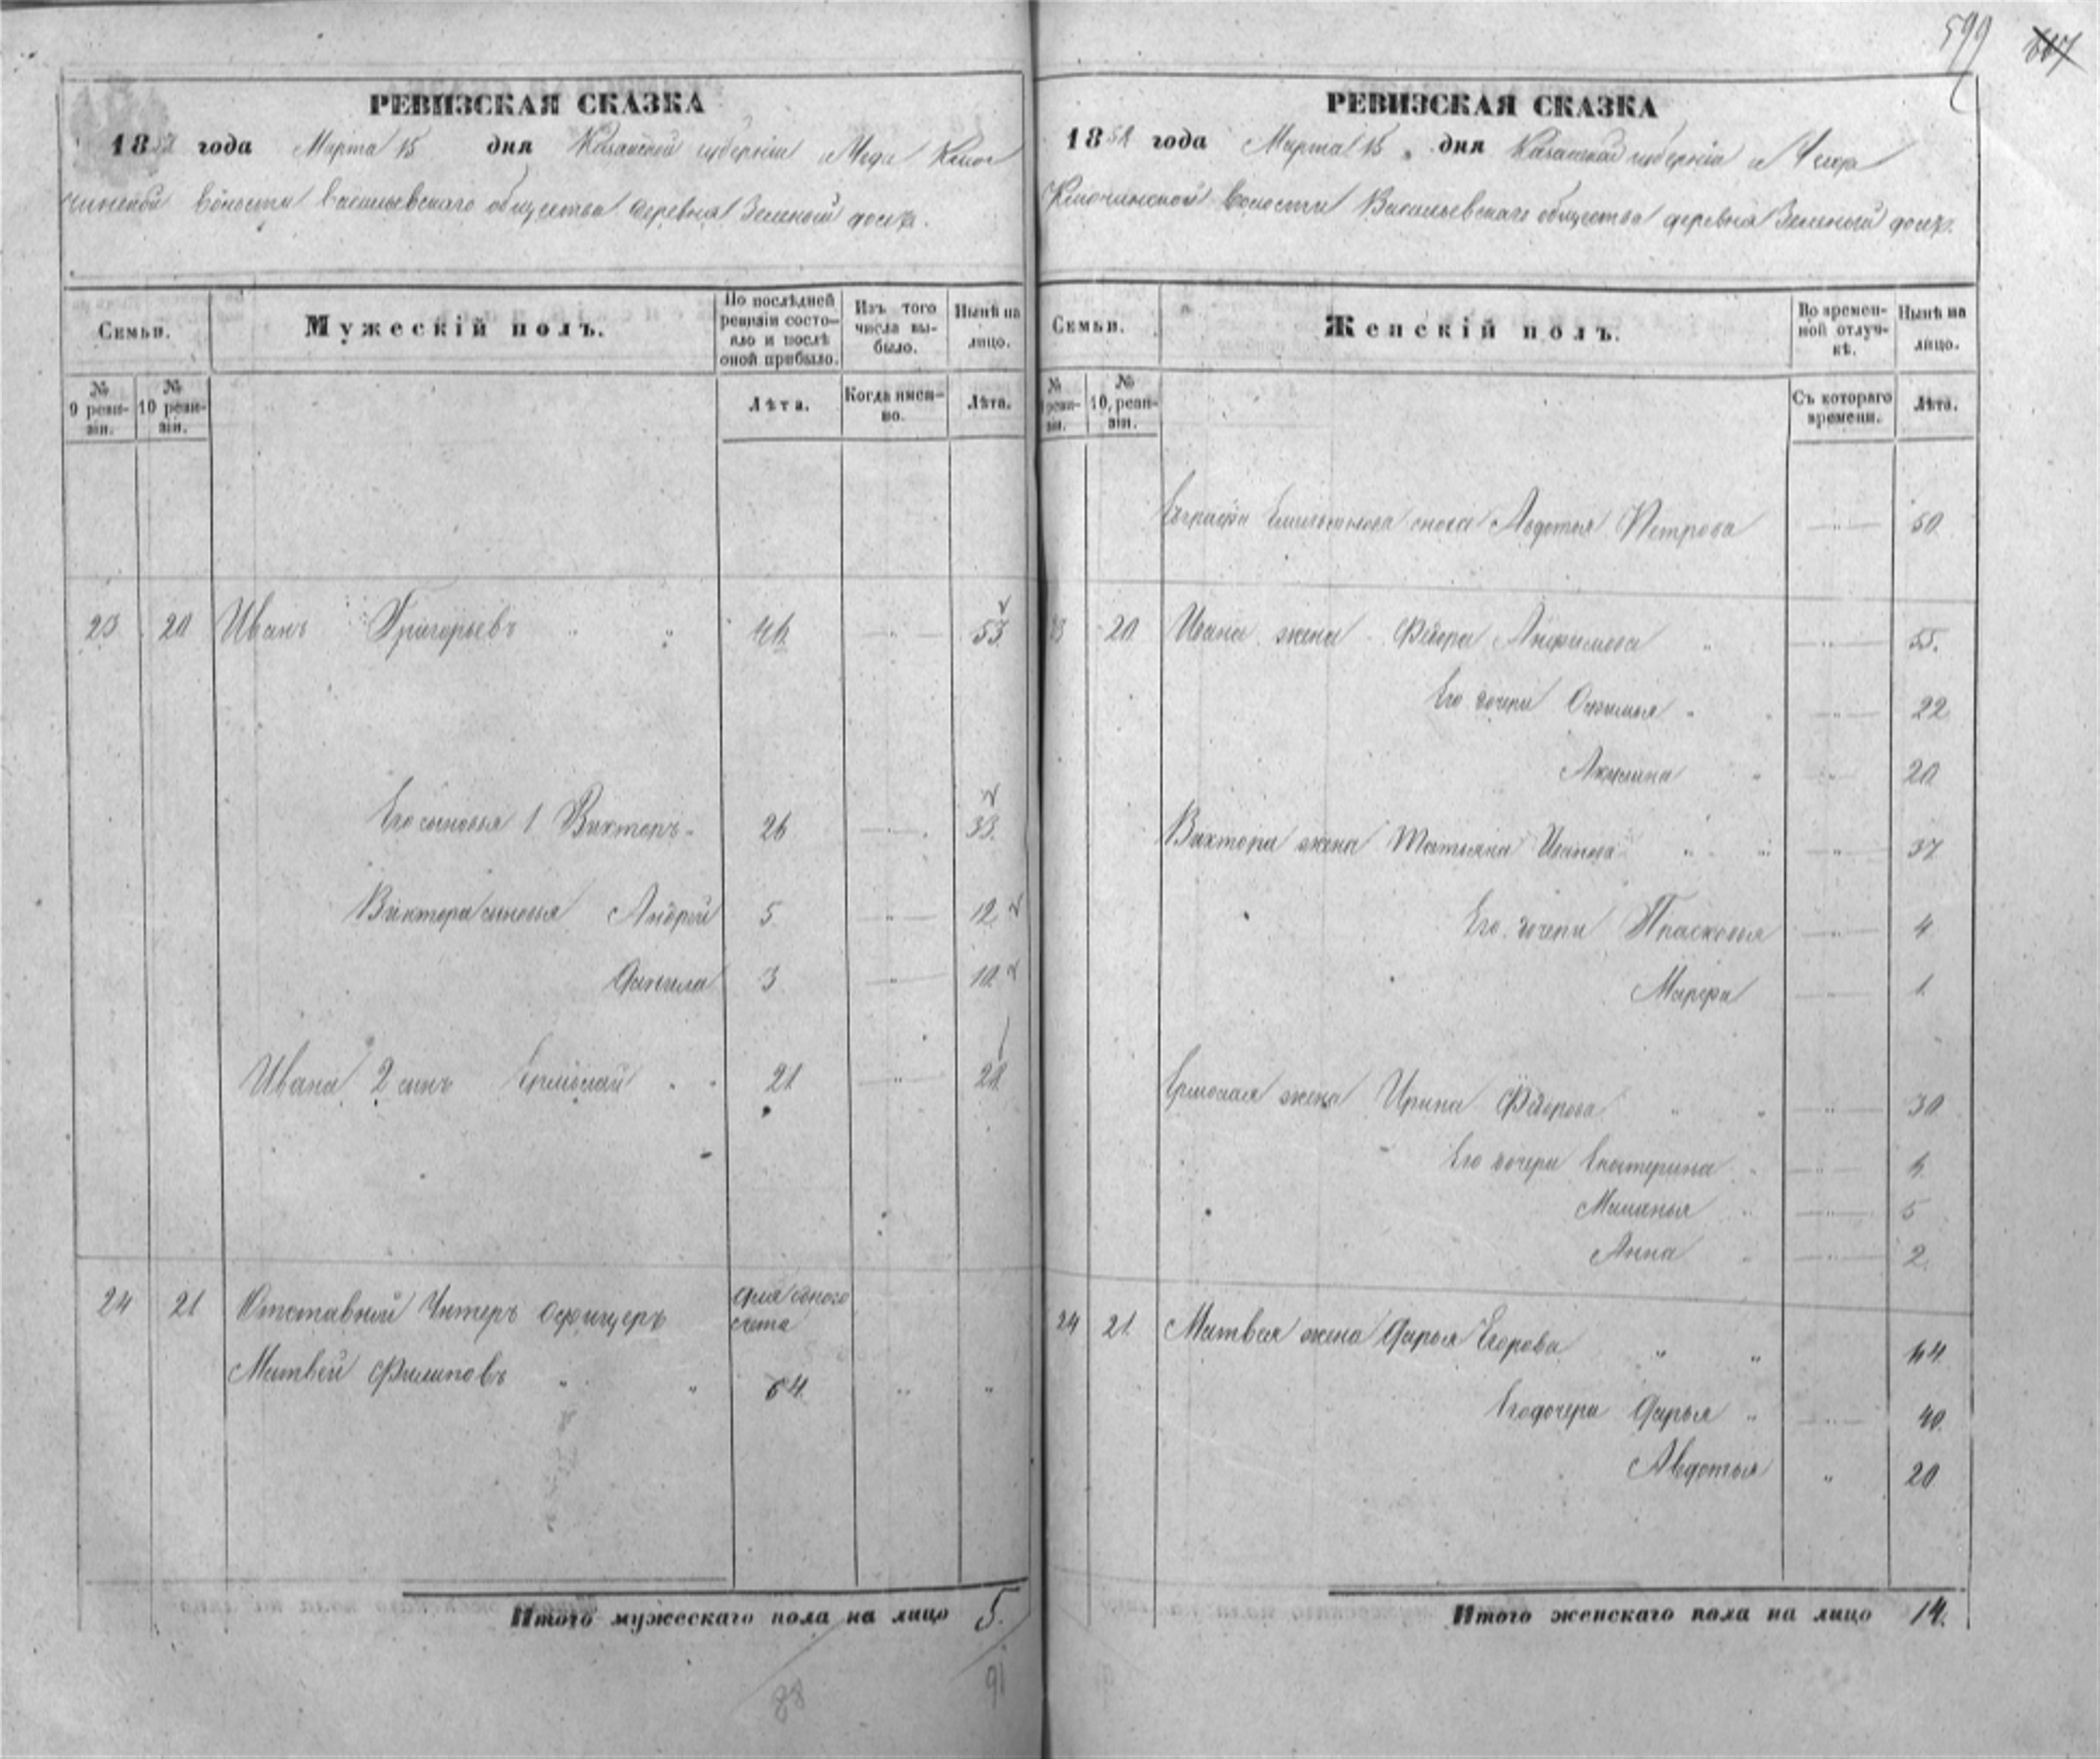 599 667
РЕВИЗСКАЯ СКАЗКА
1858 года Марта 15 дня Казанской губернiи и Уезда Клю
чинской волости Васильевскаго общества деревня Зеленый долъ.
Семьи.
Мужескiй полъ.
По послѣдней ревизiи состояло и послѣ оной прибыло.
Изъ того числа выбыло.
Нынѣ на лицо.
№ 9 ревизiи.
№ 10 ревизiи.
Лѣта.
Когда именно.
Лѣта.
23 20 Иванъ Григорьевъ 46 53
Его сыновья 1 Викторъ 26 33.
Виктора сыновья Андрей 5 12
Данила 3 10
Ивана 2 сынъ Ермолай 21 28
24 21 Отставный Унтеръ офицеръ для одного счета
Матвей Филиповъ 64
Итого мужескаго пола на лицо 5.
88 91
РЕВИЗСКАЯ СКАЗКА
1858 года Марта 15 дня Казанской губернiи и Уезда
Ключинской волости Васильевскаго общества деревня Зеленый долъ.
Семьи.
Женскiй полъ.
Во временной отлучкѣ.
Нынѣ на лицо.
№ 9 ревизiи.
№ 10 ревизiи.
Съ котораго времени.
Лѣта.
Емельянова сноха Авдотья Петрова 50
23 20 Ивана жена Анфимова 55.
Его дочери Офимья 22
Акулина 20
Виктора жена Татьяна Иванова 37
Его дочери Прасковья 4
Марфа 1.
Ермолая жена Ирина Фёдорова 30
Его дочери Екатерина 6
Маланья 5
Анна 2.
24 21. Матвея жена Дарья Егорова 64
Его дочери Дарья 40.
Авдотья 20
Итого женскаго пола на лицо 14.